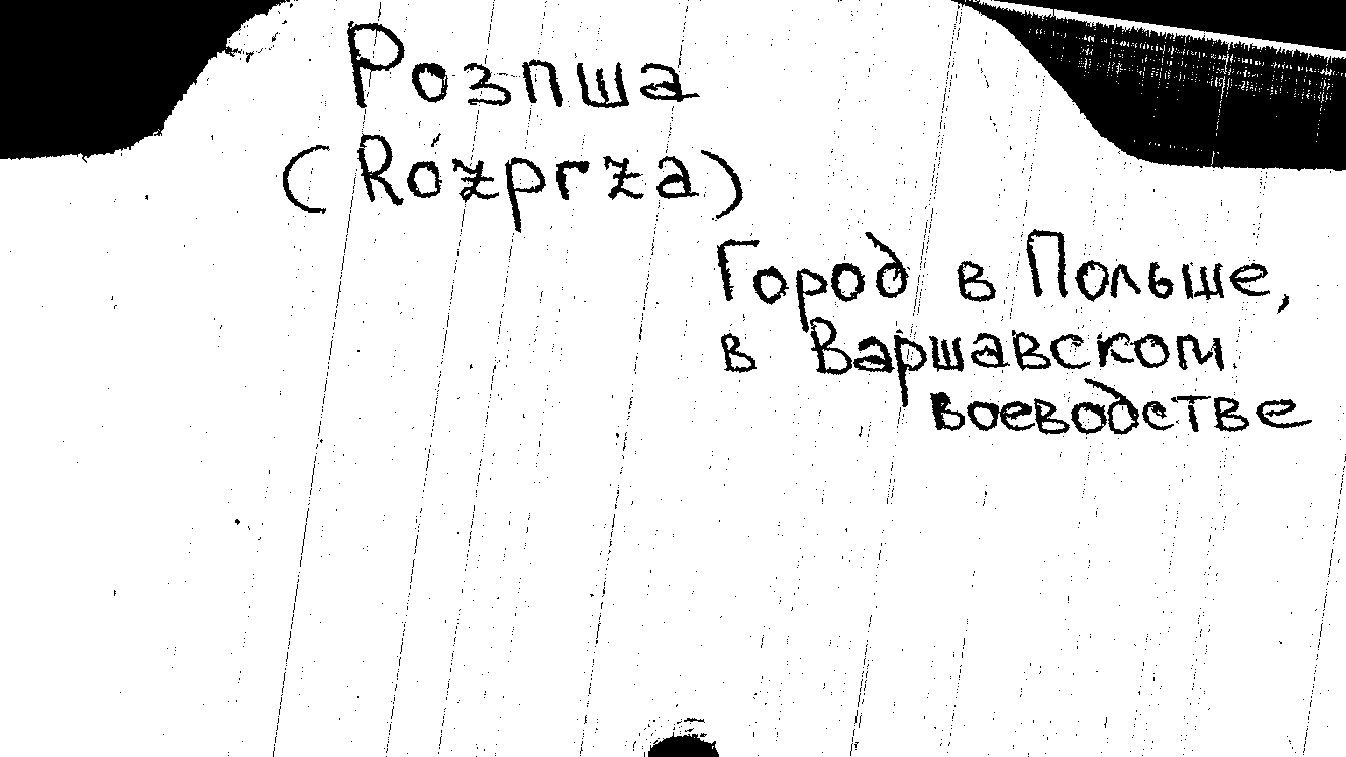 Розпша
(Rózprza)
Город в Польше,
в Варшавском
воеводстве